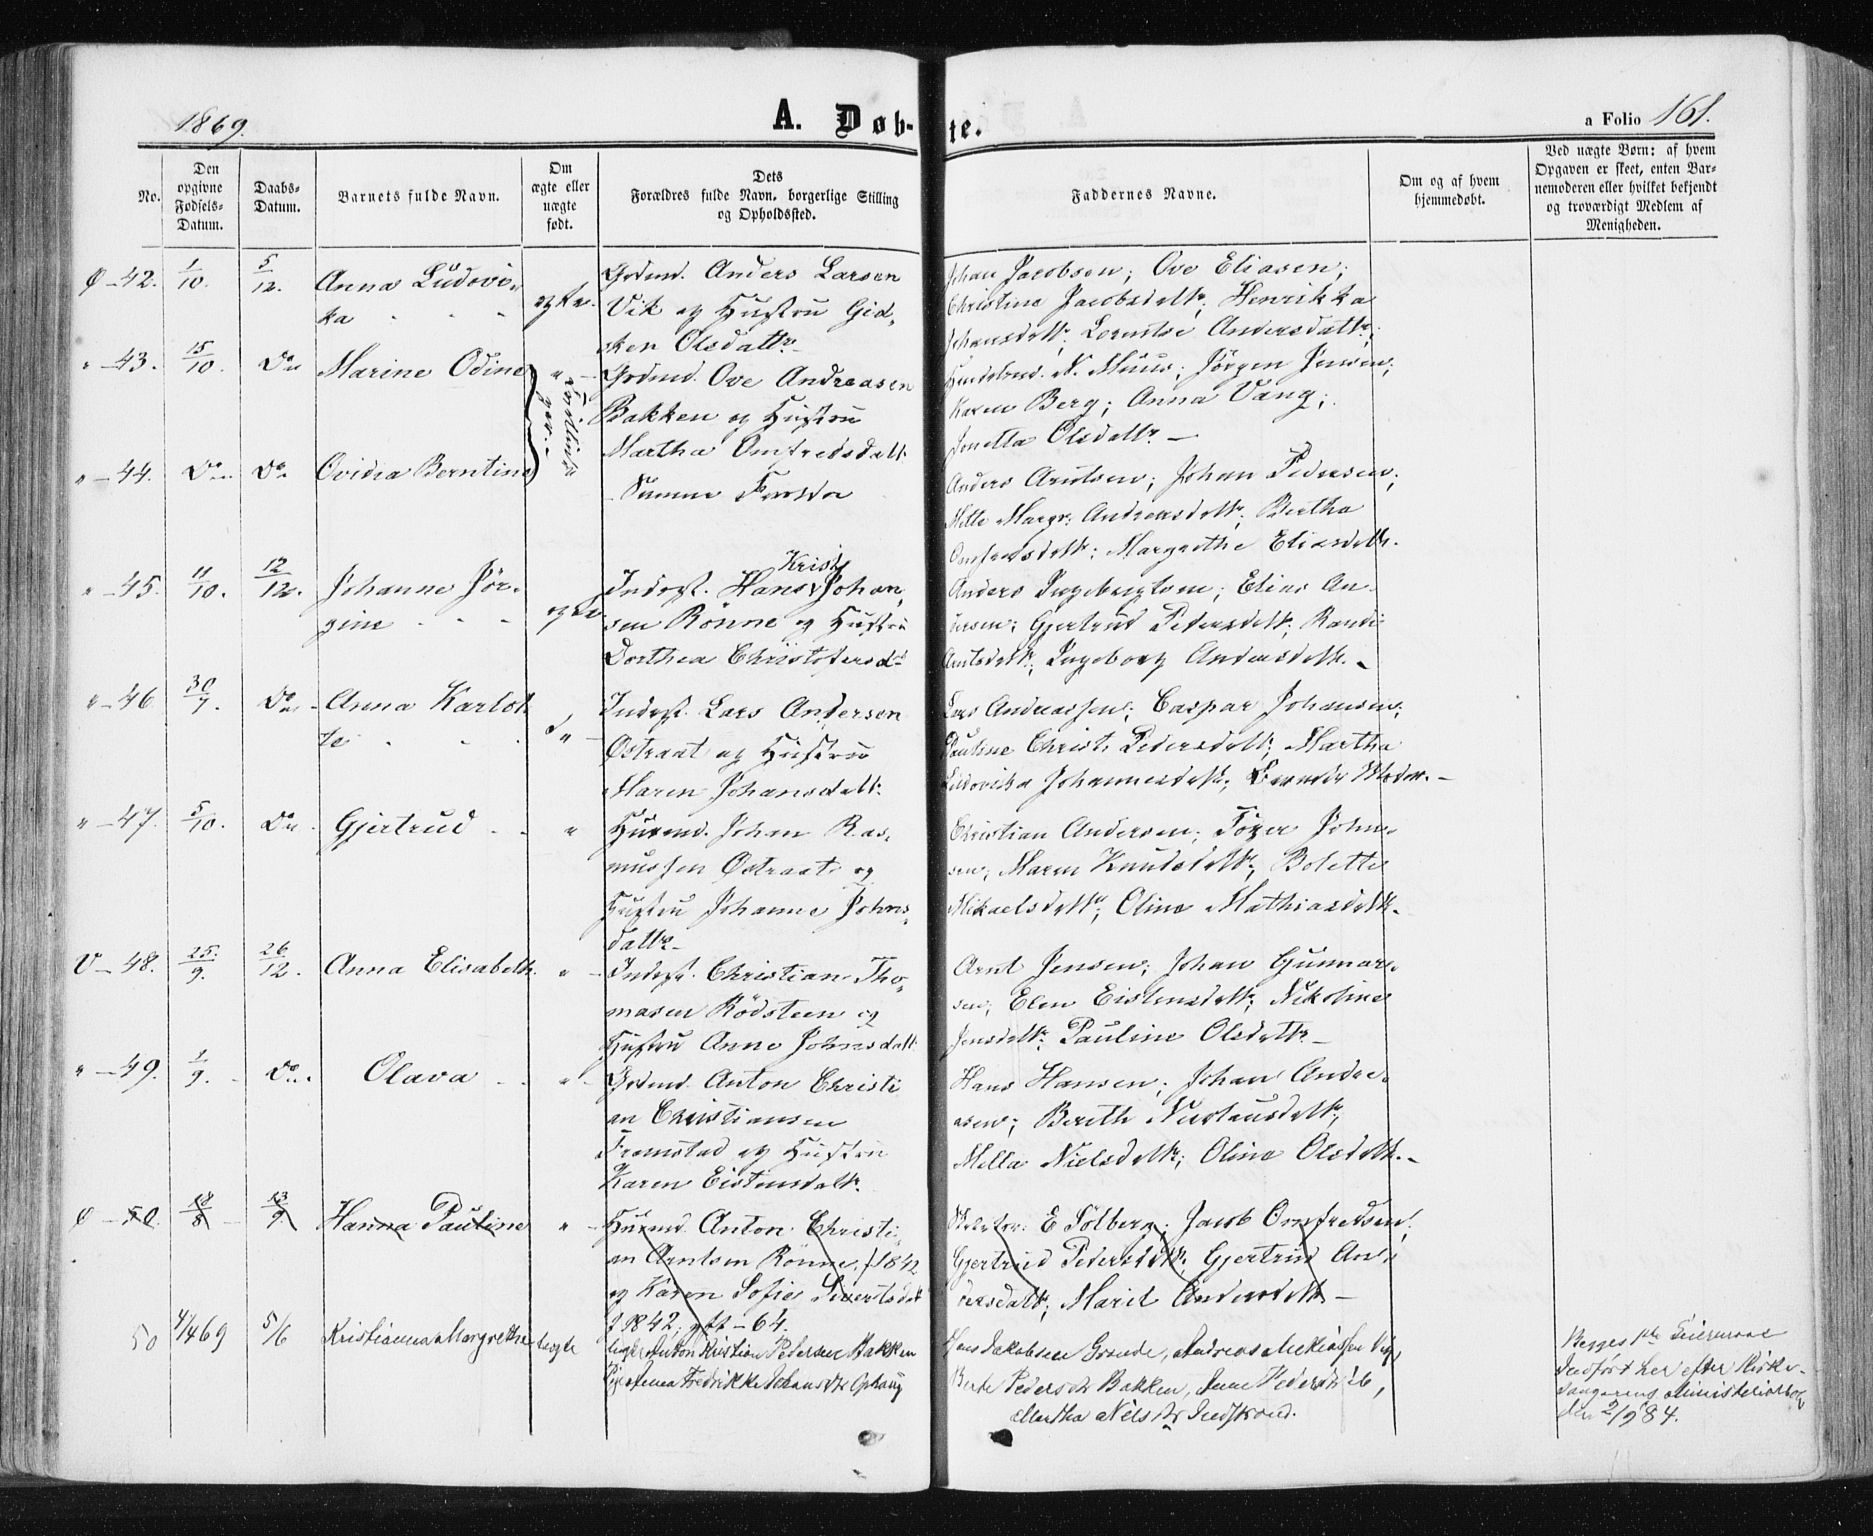 1869.
A. Døb-
te.
a Folio 161.
No.
Den opgivne Fødsels-Datum.
Daabs-Datum.
Barnets fulde Navn.
Om ægte eller uægte født.
Dets Forældres fulde Navn, borgerlige Stilling og Opholdssted.
Faddernes Navne.
Om og af hvem hjemmedøbt.
Ved uægte Børn: af hvem Opgaven er skeet, enten Barnemoderen eller hvilket bekjendt og troværdigt Medlem af Menigheden.
Ø - 42. 1/10. 5/12. Anna Ludovi-
ka
ægte.
Grdmd. Anders Larsen
Vik og Hustru Gid-
sken Olsdattr
Johan Jacobsen; Ove Eliasen;
Christine Jacobsdattr; Henrikka
Johansdattr; Lorentse Andersdattr;
" - 43. 15/10. Do Marine Odine
Tvillinger
Grdmd. Ove Andreasen
Bakken og Hustru
Martha Omfredsdatt.
N. Muus; Jörgen Jensen;
Karen Berg; Anna Vang;
Jonetta Olsdattr -
" - 44. Do Do Ovidia Berntine
Samme Forældre
Anders Arntsen; Johan Pedersen;
Mette Margr. Andreasdattr; Bertha
Omfredsdattr; Margrethe Eliasdattr.
" - 45. 11/10. 12/12. Johanne Jör-
gine
ægte
Krist.
Inderst. Hans Johan-
sen Rönne og Hustru
Dorthea Christofersd.
Anders Ingebrigtsen; Elias An-
dersen; Gjertrud Pedersdattr; Randi
Arntsdattr; Ingeborg Andersdattr.
" - 46 30/7. Do Anna Karlot-
te
Do
Inderst. Lars Andersen
Østraat og Hustru
Maren Johansdatt.
Lars Andreassen; Caspar Johansen;
Pauline Christ. Pedersdattr; Martha
Ludovika Johannesdattr;
" - 47. 5/10. Do Gjertrud
"
Husmd. Johan Ras-
mussen Østraat og
Hustru Johanne Johns-
dattr
Christian Andersen; Tözer John-
sen; Maren Knudsdattr; Bolette
Mikaelsdattr; Oline Mathiasdattr.
V - 48. 25/9. 26/12. Anna Elisabeth.
"
Inderst. Christian Tho-
masen Rödsteen og
Hustru Anne Johnsdatt.
Arnt Jensen; Johan Gunnar-
sen; Elen Eistensdattr; Nikoline
Jensdattr; Pauline Olsdattr -
" - 49. 1/9. Do Olava
"
Grdmd. Anton Christi
an Christiansen
Fremstad og Hustru
Karen Eistensdatt.
Hans Hansen; Johan Andre-
asen; Bereth Nicolausdattr;
Mella Nielsdattr; Oline Olsdattr.
Ø - 50. 18/8 13/9 Hanna Pauline
"
Husmd. Anton Christi-
an Arntsen Rönne, f 1842
og Karen Sofie Sivertsdatt
f 1842, gft - 64.
E Sölberg; Jacob Omfredsen;
Gjertrud Pedersdattr; Gjertrud An-
dersdattr; Marit Andersdattr -
50 4/4 69 5/6 Kristianna Margrethe
uægte
Ungkr Anton Kristian Pedersen Bakken
Pige Fredrikke Johansdtr Ophaug
Hans Jakobsen Grande, Andreas Mikkelsen Vig,
Berte Pedersdtr Bakken, Pedersdtr ib,
Martha Nilsdtr Indstrand.
Begges 1ste Leiermaal
Indført her efter Kirke-
sangerens Ministerialbog
den 2/9 84.